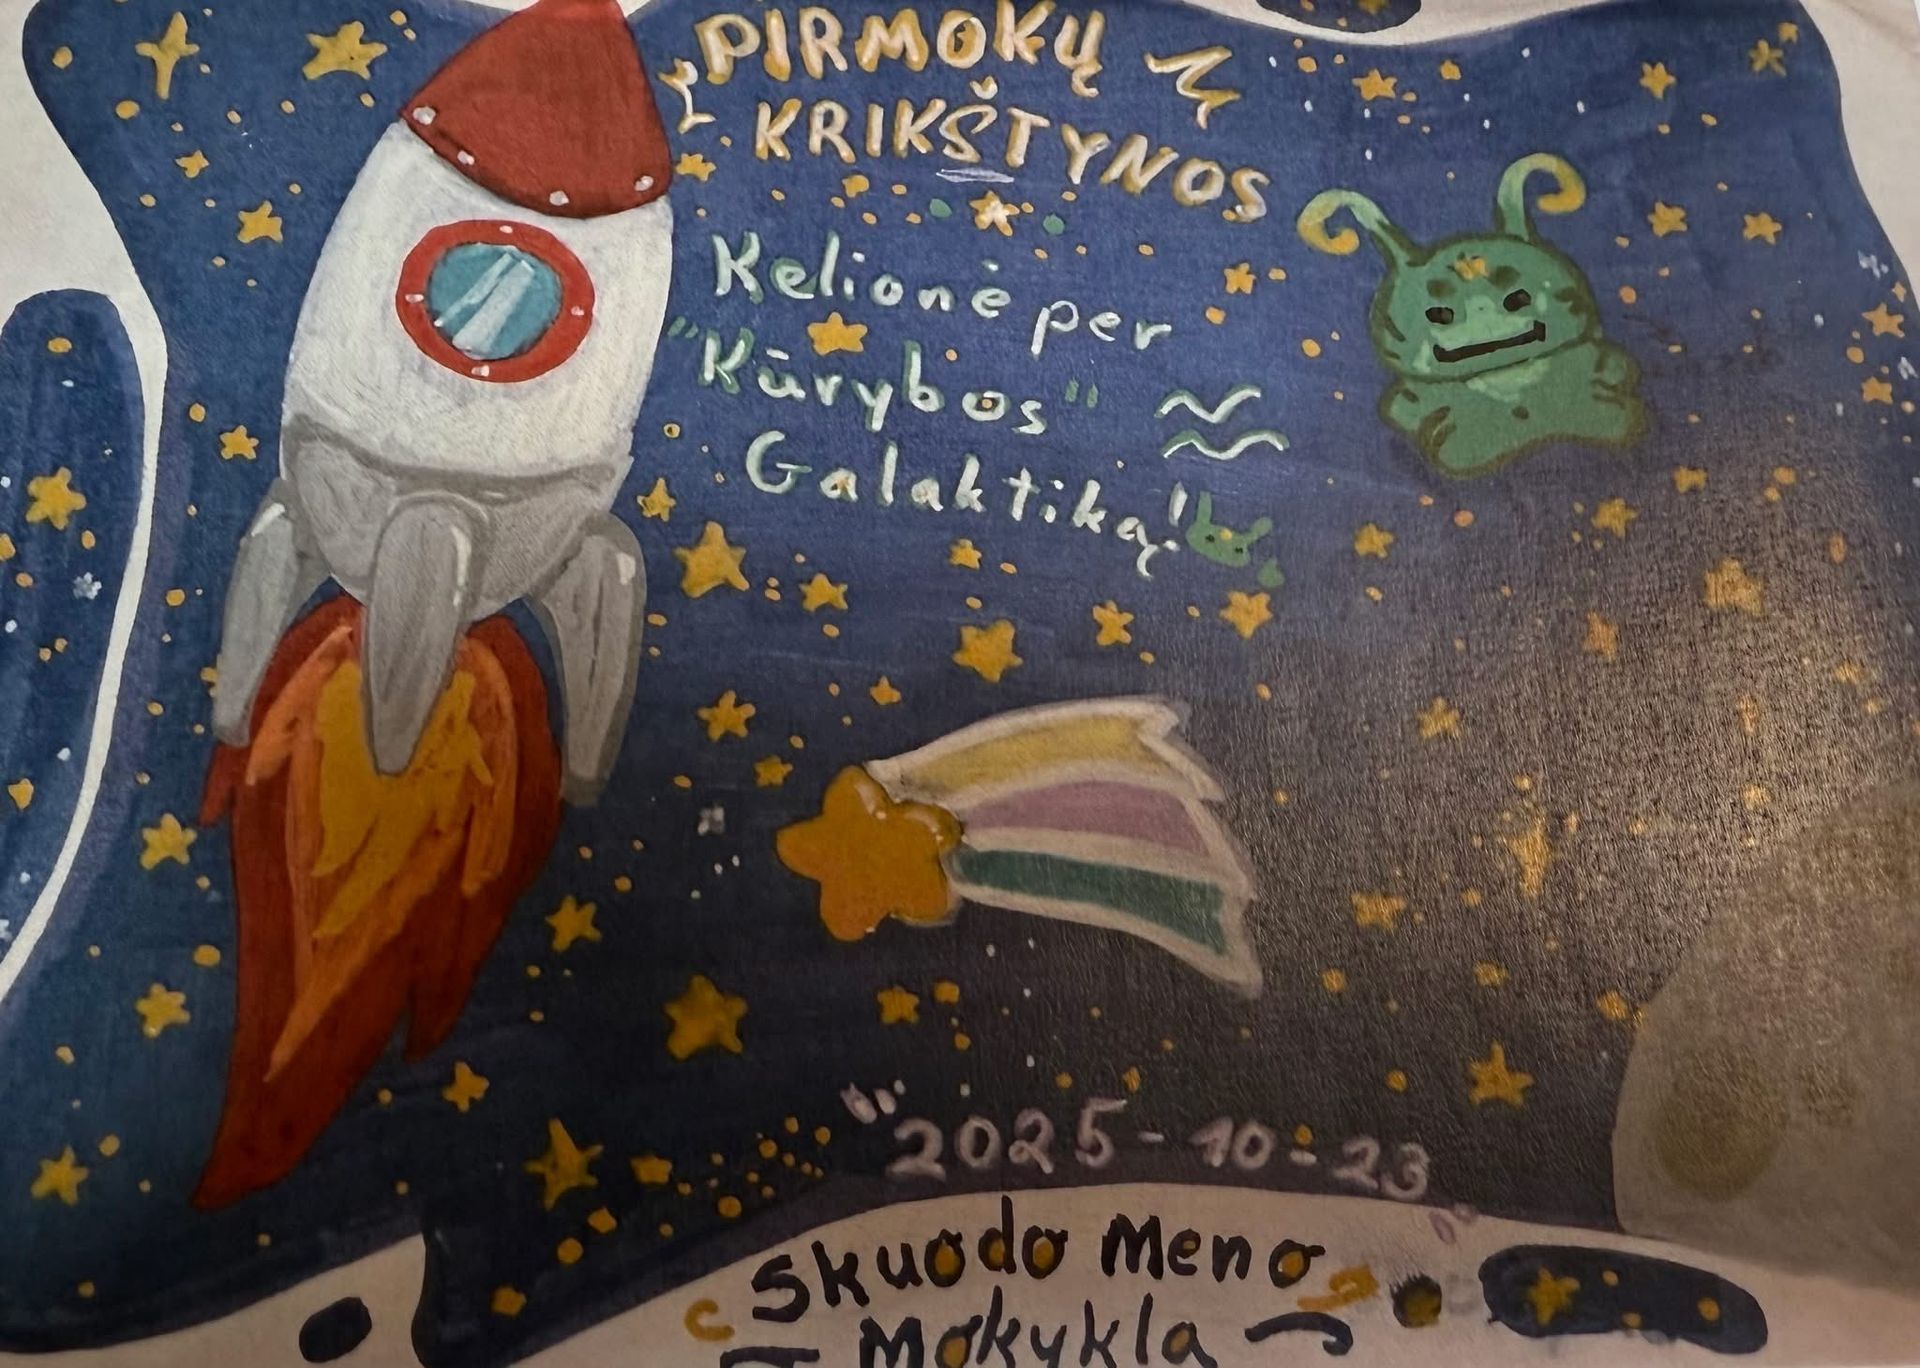 PIRMOKŲ
KRIKŠTYNOS
Kelionė per
"Kūrybos"
Galaktiką!
"2025-10-23"
Skuodo Meno
Mokykla